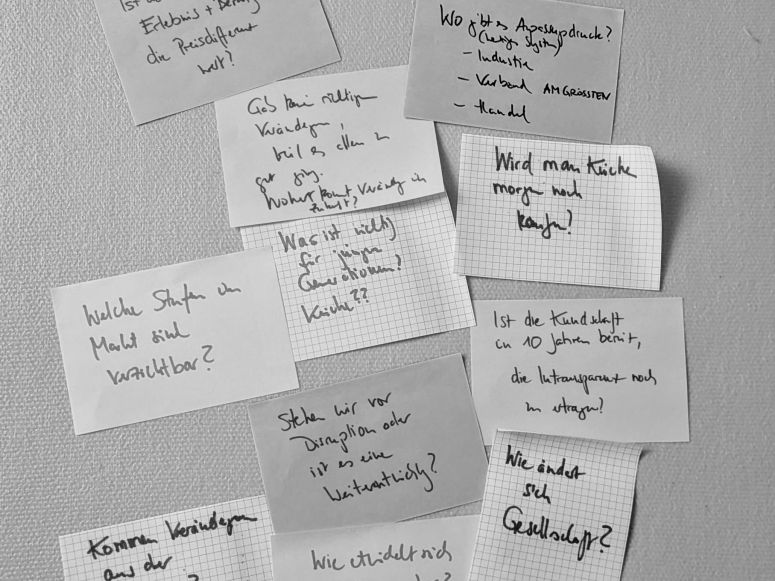 Ist
Erlebnis +
die Preisdifferenz
wert?
Wo gibt es Anpassungsdruck?
(heutiges System)
- Industrie
- Verband AM GRÖSSTEN
- Handel
Gab keine richtigen
Veränderungen,
weil es allen zu
gut ging.
Woher kommt Veränderung in
Zukunft?
Wird man Küche
morgen noch
kaufen?
Was ist wichtig
für jüngere
Generationen?
Küche??
Welche Stufen im
Markt sind
verzichtbar?
Ist die Kundschaft
in 10 Jahren bereit,
die Intransparenz noch
zu ertragen?
Stehen wir vor
Disruption oder
ist es eine
Weiterentwicklg?
Wie ändert
sich
Gesellschaft?
Kommen Veränderungen
aus der
?
Wie entwickelt sich
?